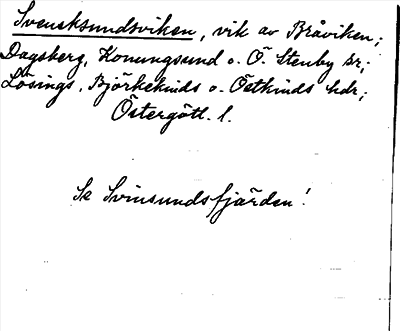 Svensksundsviken, vik av Bråviken;
Dagsberg, Konungsund o. Ö. Stenby sr;
Lösings, Björkekinds o. Östkinds hdr;
Östergötl. l.
Se Svinsundsfjärden!